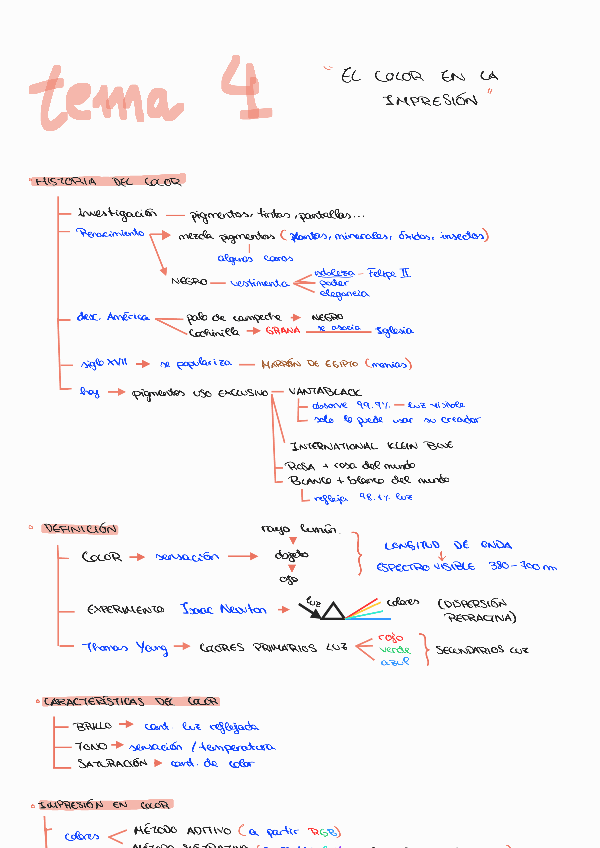 tema 4
"EL COLOR EN LA
IMPRESIÓN"
HISTORIA DEL COLOR
Investigación — pigmentos, tintas, pantallas...
Renacimiento → mezcla pigmentos (plantas, minerales, óxidos, insectos)
algunos caros
NEGRO — vestimenta
nobleza - Felipe II
poder
elegancia
desc. América
palo de campeche → NEGRO
Cochinilla → GRANA se asocia Iglesia
siglo XVII → se populariza — MARRÓN DE EGIPTO (momias)
hoy → pigmentos USO EXCLUSIVO — VANTABLACK
absorve 99.9% — luz visible
solo lo puede usar su creador
INTERNATIONAL KLEIN BLUE
ROSA + rosa del mundo
BLANCO + blanco del mundo
refleja 98.1% luz
DEFINICIÓN
COLOR → sensación →
rayo lumín.
objeto
ojo
LONGITUD DE ONDA
ESPECTRO VISIBLE 380-700 nm
EXPERIMENTO Isaac Newton → luz colores (DISPERSIÓN
REFRACTIVA)
Thomas Young → COLORES PRIMARIOS LUZ
rojo
verde
azul
SECUNDARIOS LUZ
CARACTERÍSTICAS DEL COLOR
BRILLO → cant. luz reflejada
TONO → sensación / temperatura
SATURACIÓN → cant. de color
IMPRESIÓN EN COLOR
colores
MÉTODO ADITIVO (a partir RGB)